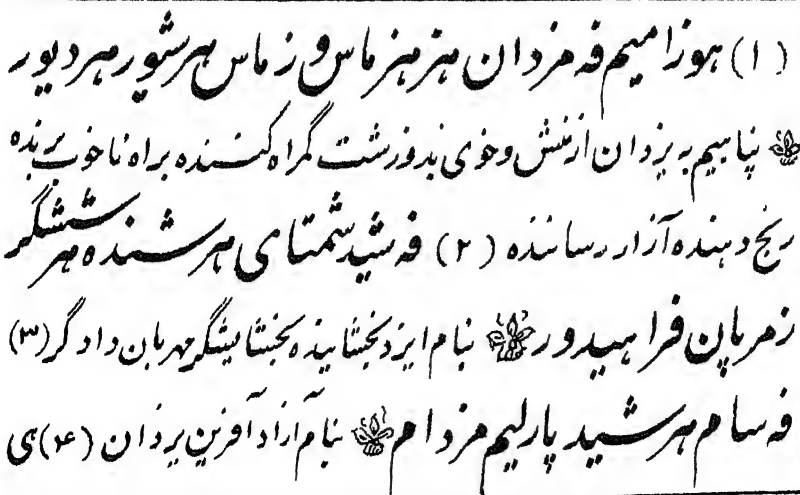 (۱) هوزامیم فه مزدان هز هزماس وزماس هرشیور هردیور
پناهیم به یزدان از منش و خوی بد و زشت گمراه کننده براه ناخوب برنده
رنج دهنده آزار رساننده (۲) فه شید شمتای هرشنده هرششگر
زمرپان فراهیدور بنام ایزد بخشاینده بخشایشگر مهربان دادگر (۳)
فه سام هرشید پارلیم مزدام بنام آزاد آفرین یزدان (۴) هی